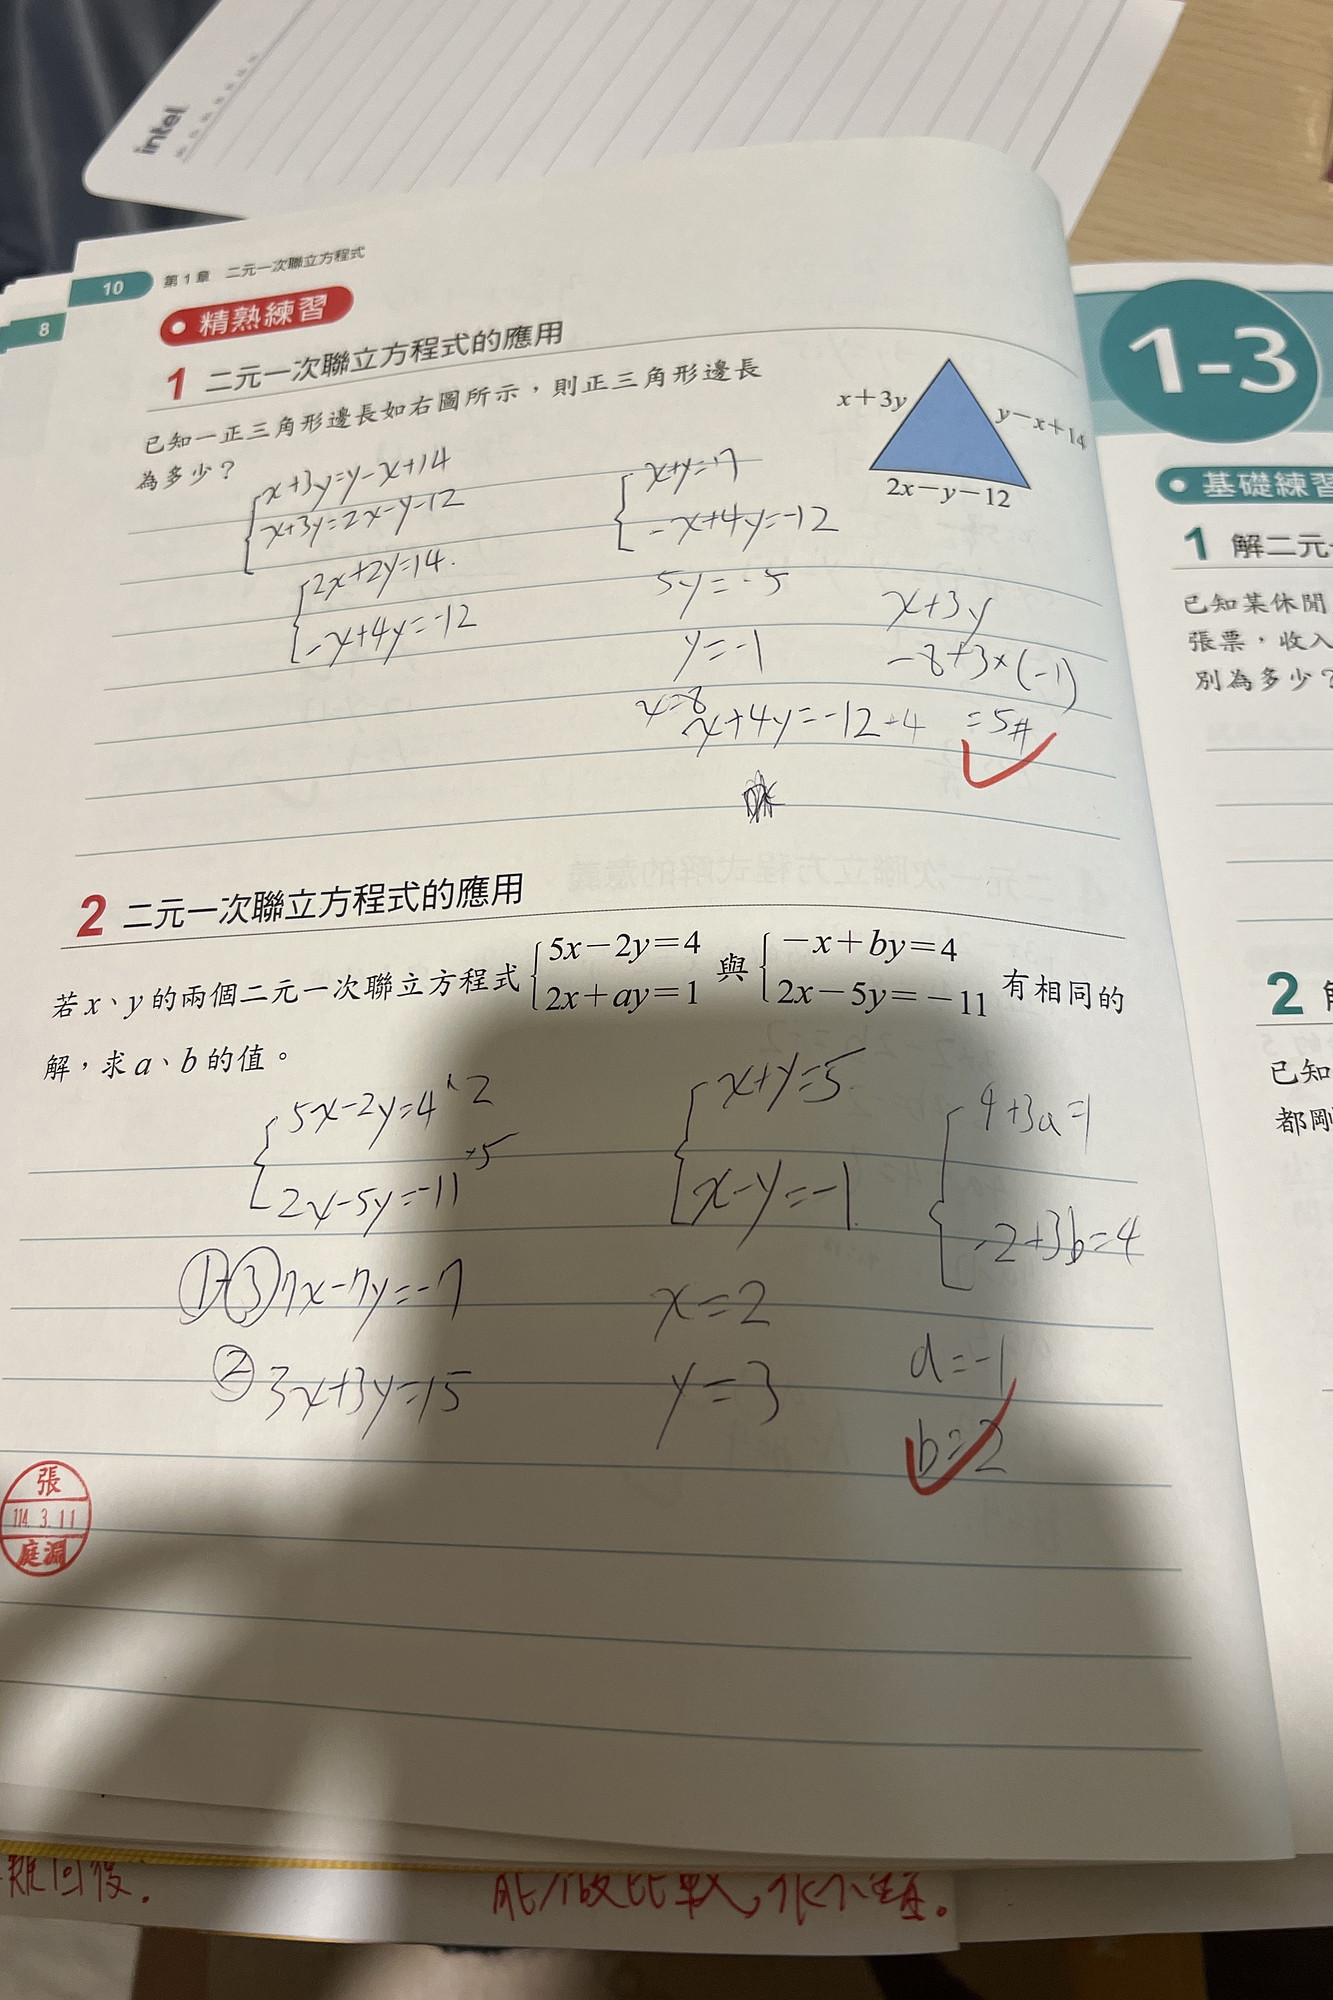 intel
10 第1章 二元一次聯立方程式
8
精熟練習
1 二元一次聯立方程式的應用
已知一正三角形邊長如右圖所示，則正三角形邊長
為多少？
x+3y
y-x+14
2x-y-12
x+3y=y-x+14
x+3y=2x-y-12
2x+2y=14.
-x+4y=-12
x+y=7
-x+4y=-12
5y=-5
y=-1
x=8
x+4y=-12+4
x+3y
-8+3×(-1)
=5#
2 二元一次聯立方程式的應用
若x、y的兩個二元一次聯立方程式{5x-2y=4 與{-x+by=4 有相同的
2x+ay=1 2x-5y=-11
解，求a、b的值。
5x-2y=4 ×2
2x-5y=-11 ×5
①+③ 7x-7y=-7
② 3x+3y=15
x+y=5
x-y=-1
x=2
y=3
4+3a=1
-2+3b=4
a=-1
b=2
張
114.3.11
庭淵
1-3
基礎練習
1 解二元
已知某休閒
張票，收入
別為多少？
2
已知
都剛